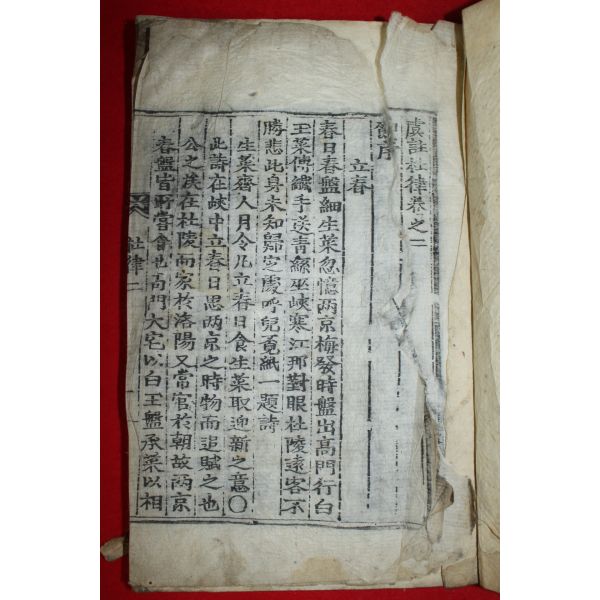 虞註杜律卷之二
節序
立春
春日春盤細生菜忽憶兩京梅發時盤出高門行白
玉菜傳纖手送青絲巫峽寒江那對眼杜陵遠客不
勝悲此身未知歸定處呼兒覓紙一題詩
生菜齊人月令凡立春日食生菜取迎新之意○
此詩在峽中立春日思兩京之時物而追賦之也
公之族在杜陵而家於洛陽又常官於朝故兩京
春盤皆所嘗食也高門大宅以白玉盤承菜以相
杜律二